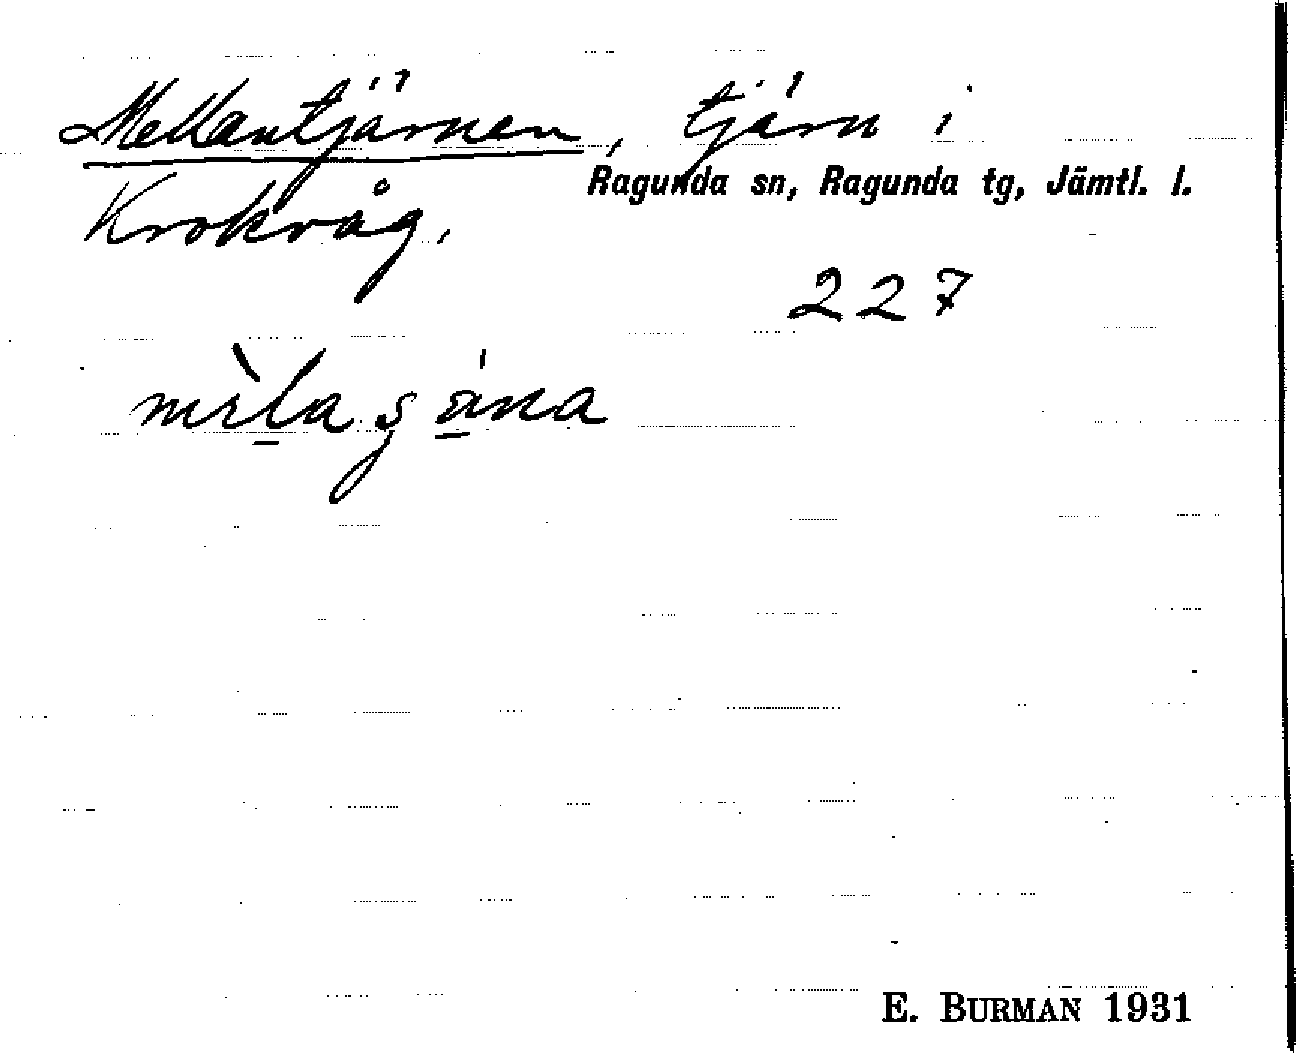 Mellantjärnen, tjärn i
Ragunda sn, Ragunda tg, Jämtl. l.
Krokvåg.
227
E. BURMAN 1931